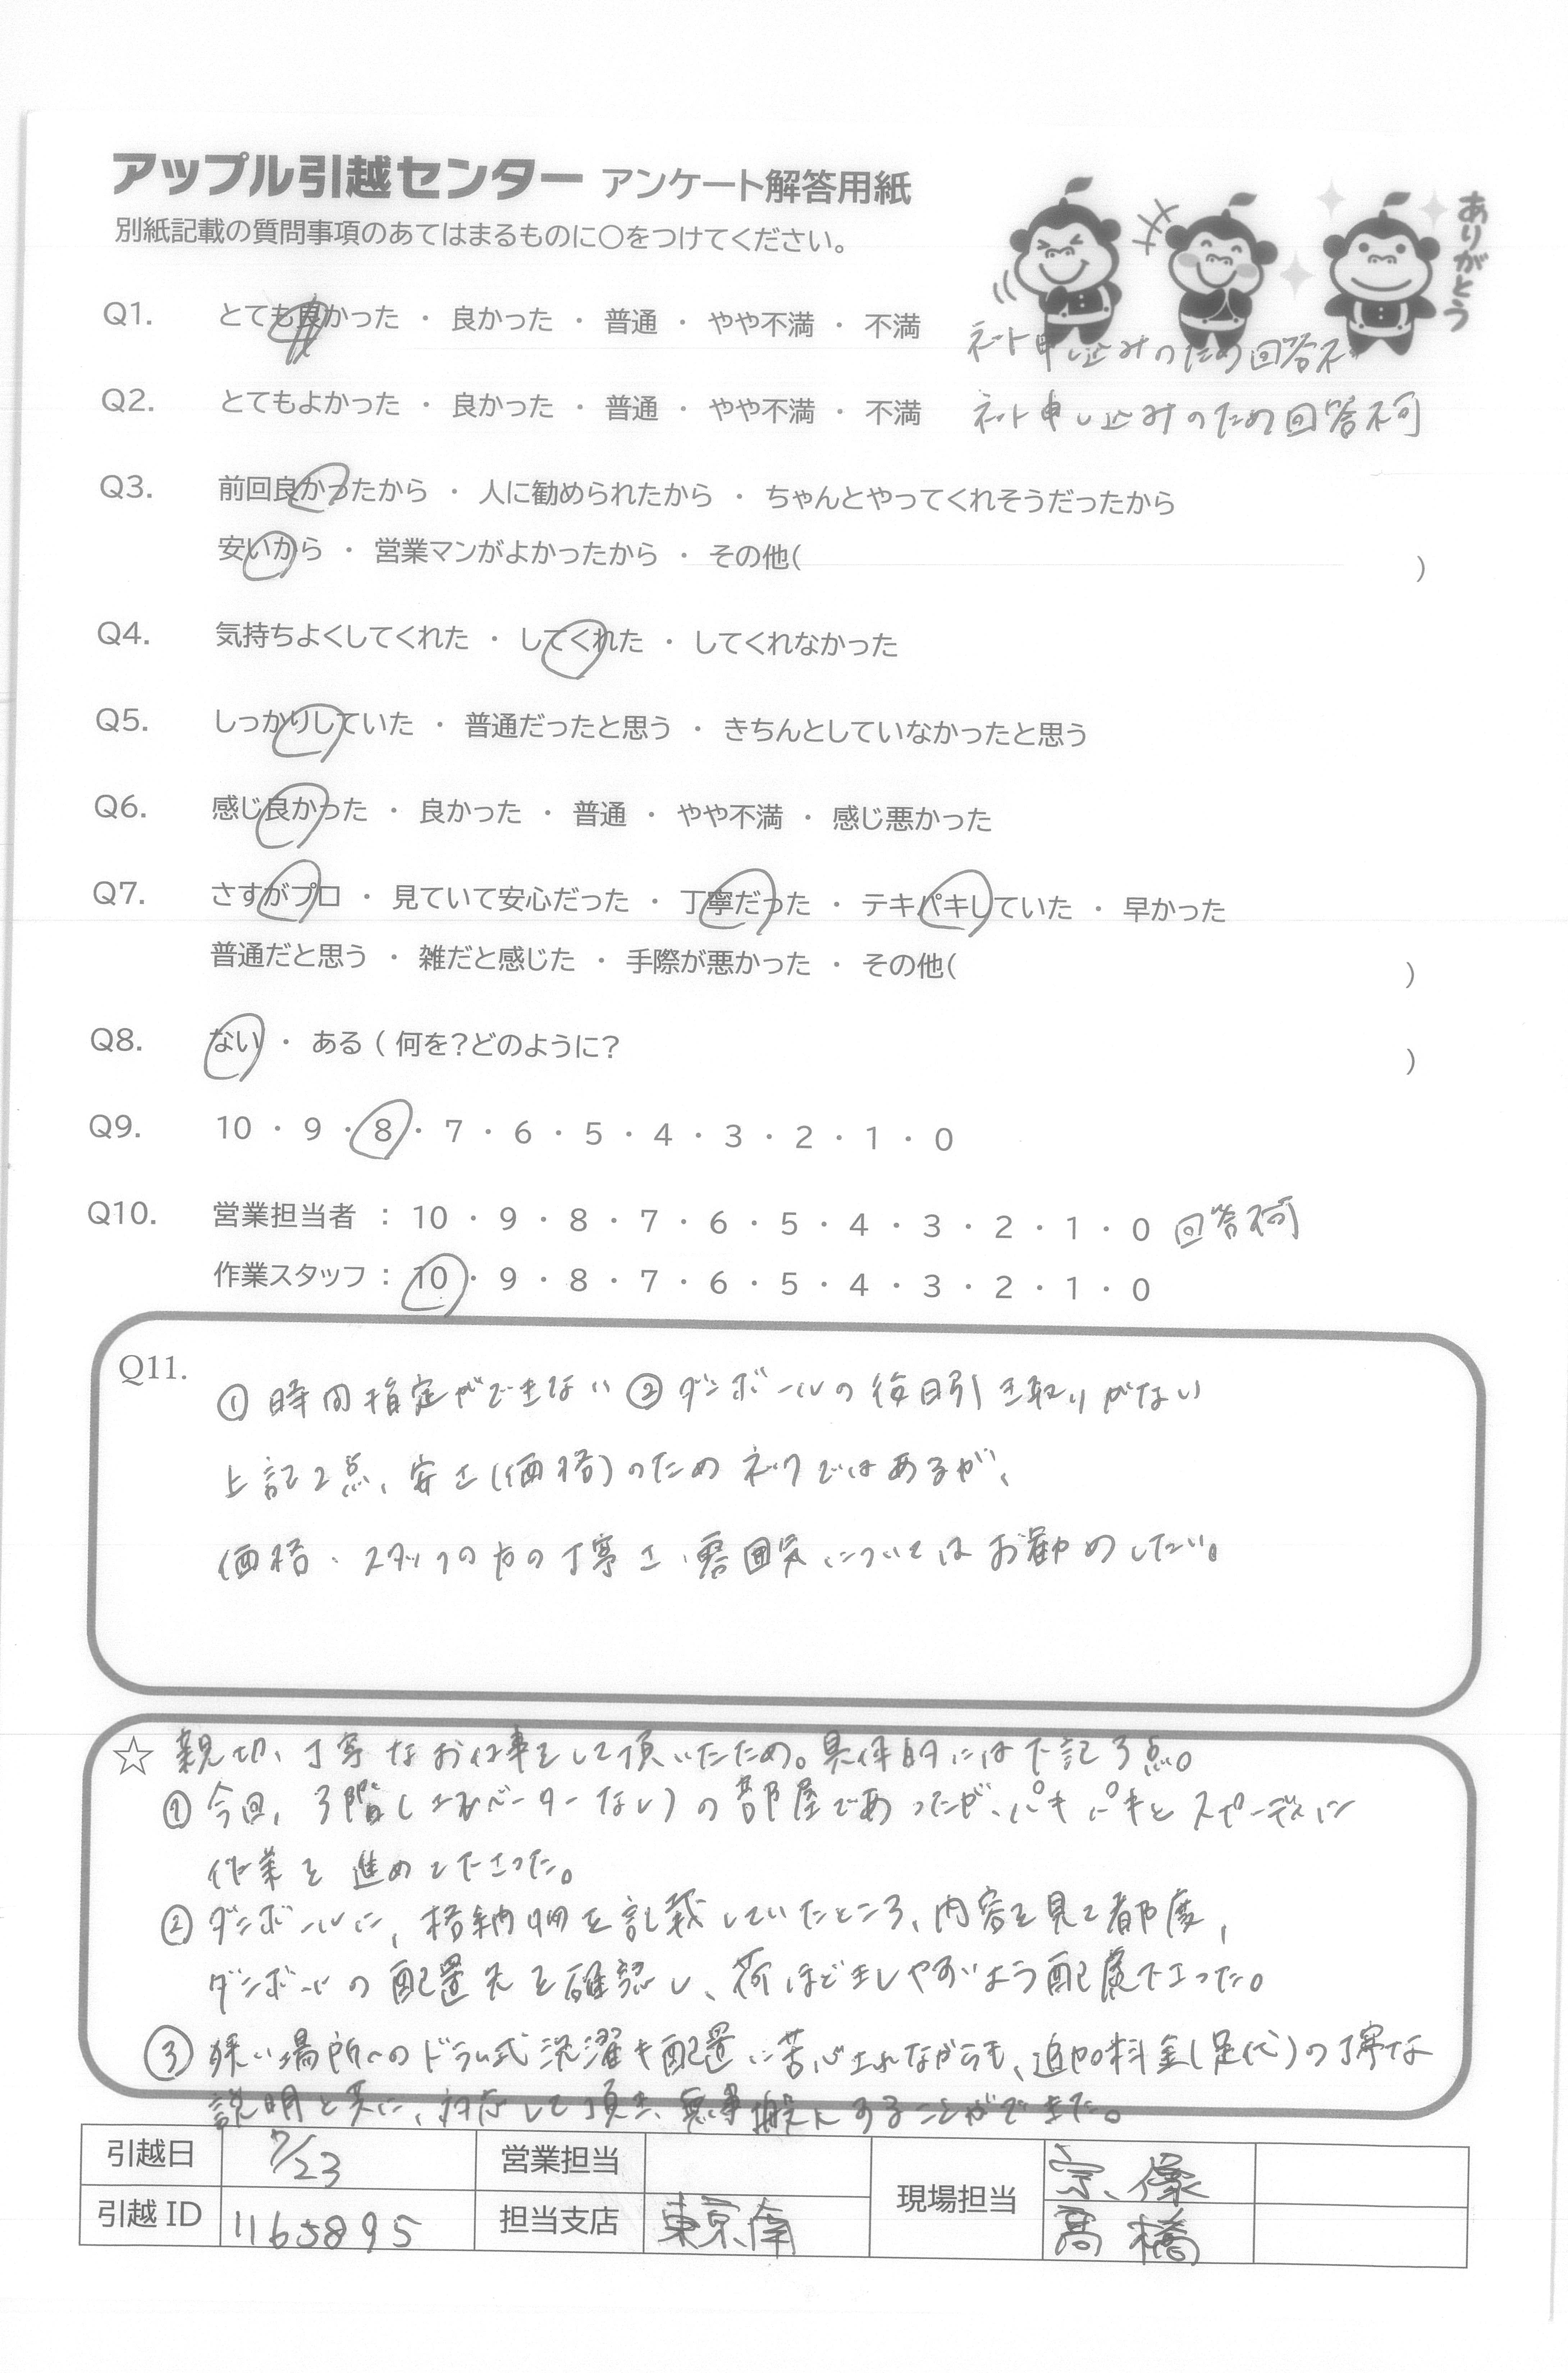 アップル引越センター アンケート解答用紙
別紙記載の質問事項のあてはまるものに〇をつけてください。
ありがとう
Q1. とても良かった ・ 良かった ・ 普通 ・ やや不満 ・ 不満 ネット申し込みのため回答不
Q2. とてもよかった ・ 良かった ・ 普通 ・ やや不満 ・ 不満 ネット申し込みのため回答不可
Q3. 前回良かったから ・ 人に勧められたから ・ ちゃんとやってくれそうだったから
安いから ・ 営業マンがよかったから ・ その他( )
Q4. 気持ちよくしてくれた ・ してくれた ・ してくれなかった
Q5. しっかりしていた ・ 普通だったと思う ・ きちんとしていなかったと思う
Q6. 感じ良かった ・ 良かった ・ 普通 ・ やや不満 ・ 感じ悪かった
Q7. さすがプロ ・ 見ていて安心だった ・ 丁寧だった ・ テキパキしていた ・ 早かった
普通だと思う ・ 雑だと感じた ・ 手際が悪かった ・ その他( )
Q8. ない ・ ある ( 何を?どのように? )
Q9. 10 ・ 9 ・ 8 ・ 7 ・ 6 ・ 5 ・ 4 ・ 3 ・ 2 ・ 1 ・ 0
Q10. 営業担当者 : 10 ・ 9 ・ 8 ・ 7 ・ 6 ・ 5 ・ 4 ・ 3 ・ 2 ・ 1 ・ 0 回答不可
作業スタッフ : 10 ・ 9 ・ 8 ・ 7 ・ 6 ・ 5 ・ 4 ・ 3 ・ 2 ・ 1 ・ 0
Q11. ① 時間指定ができない ② ダンボールの後日引き取りがない
上記2点、安さ(価格)のためネックではあるが、
価格・スタッフの方の丁寧さ・雰囲気についてはお勧めしたい。
☆ 親切、丁寧なお仕事をして頂いたため。具体的には下記3点。
① 今回、3階(エレベーターなし)の部屋であったが、パキパキとスピーディに
作業を進めて下さった。
② ダンボールに、格納物を記載していたところ、内容を見て都度、
ダンボールの配置先を確認し、荷ほどきしやすいよう配慮下さった。
③ 狭い場所へのドラム式洗濯き配置に苦心されながらも、追加料金(足代)の丁寧な
説明と共に、対応して頂き、無事搬入することができた。
引越日 7/23 営業担当 現場担当 宗像
引越ID 1165895 担当支店 東京南 高橋